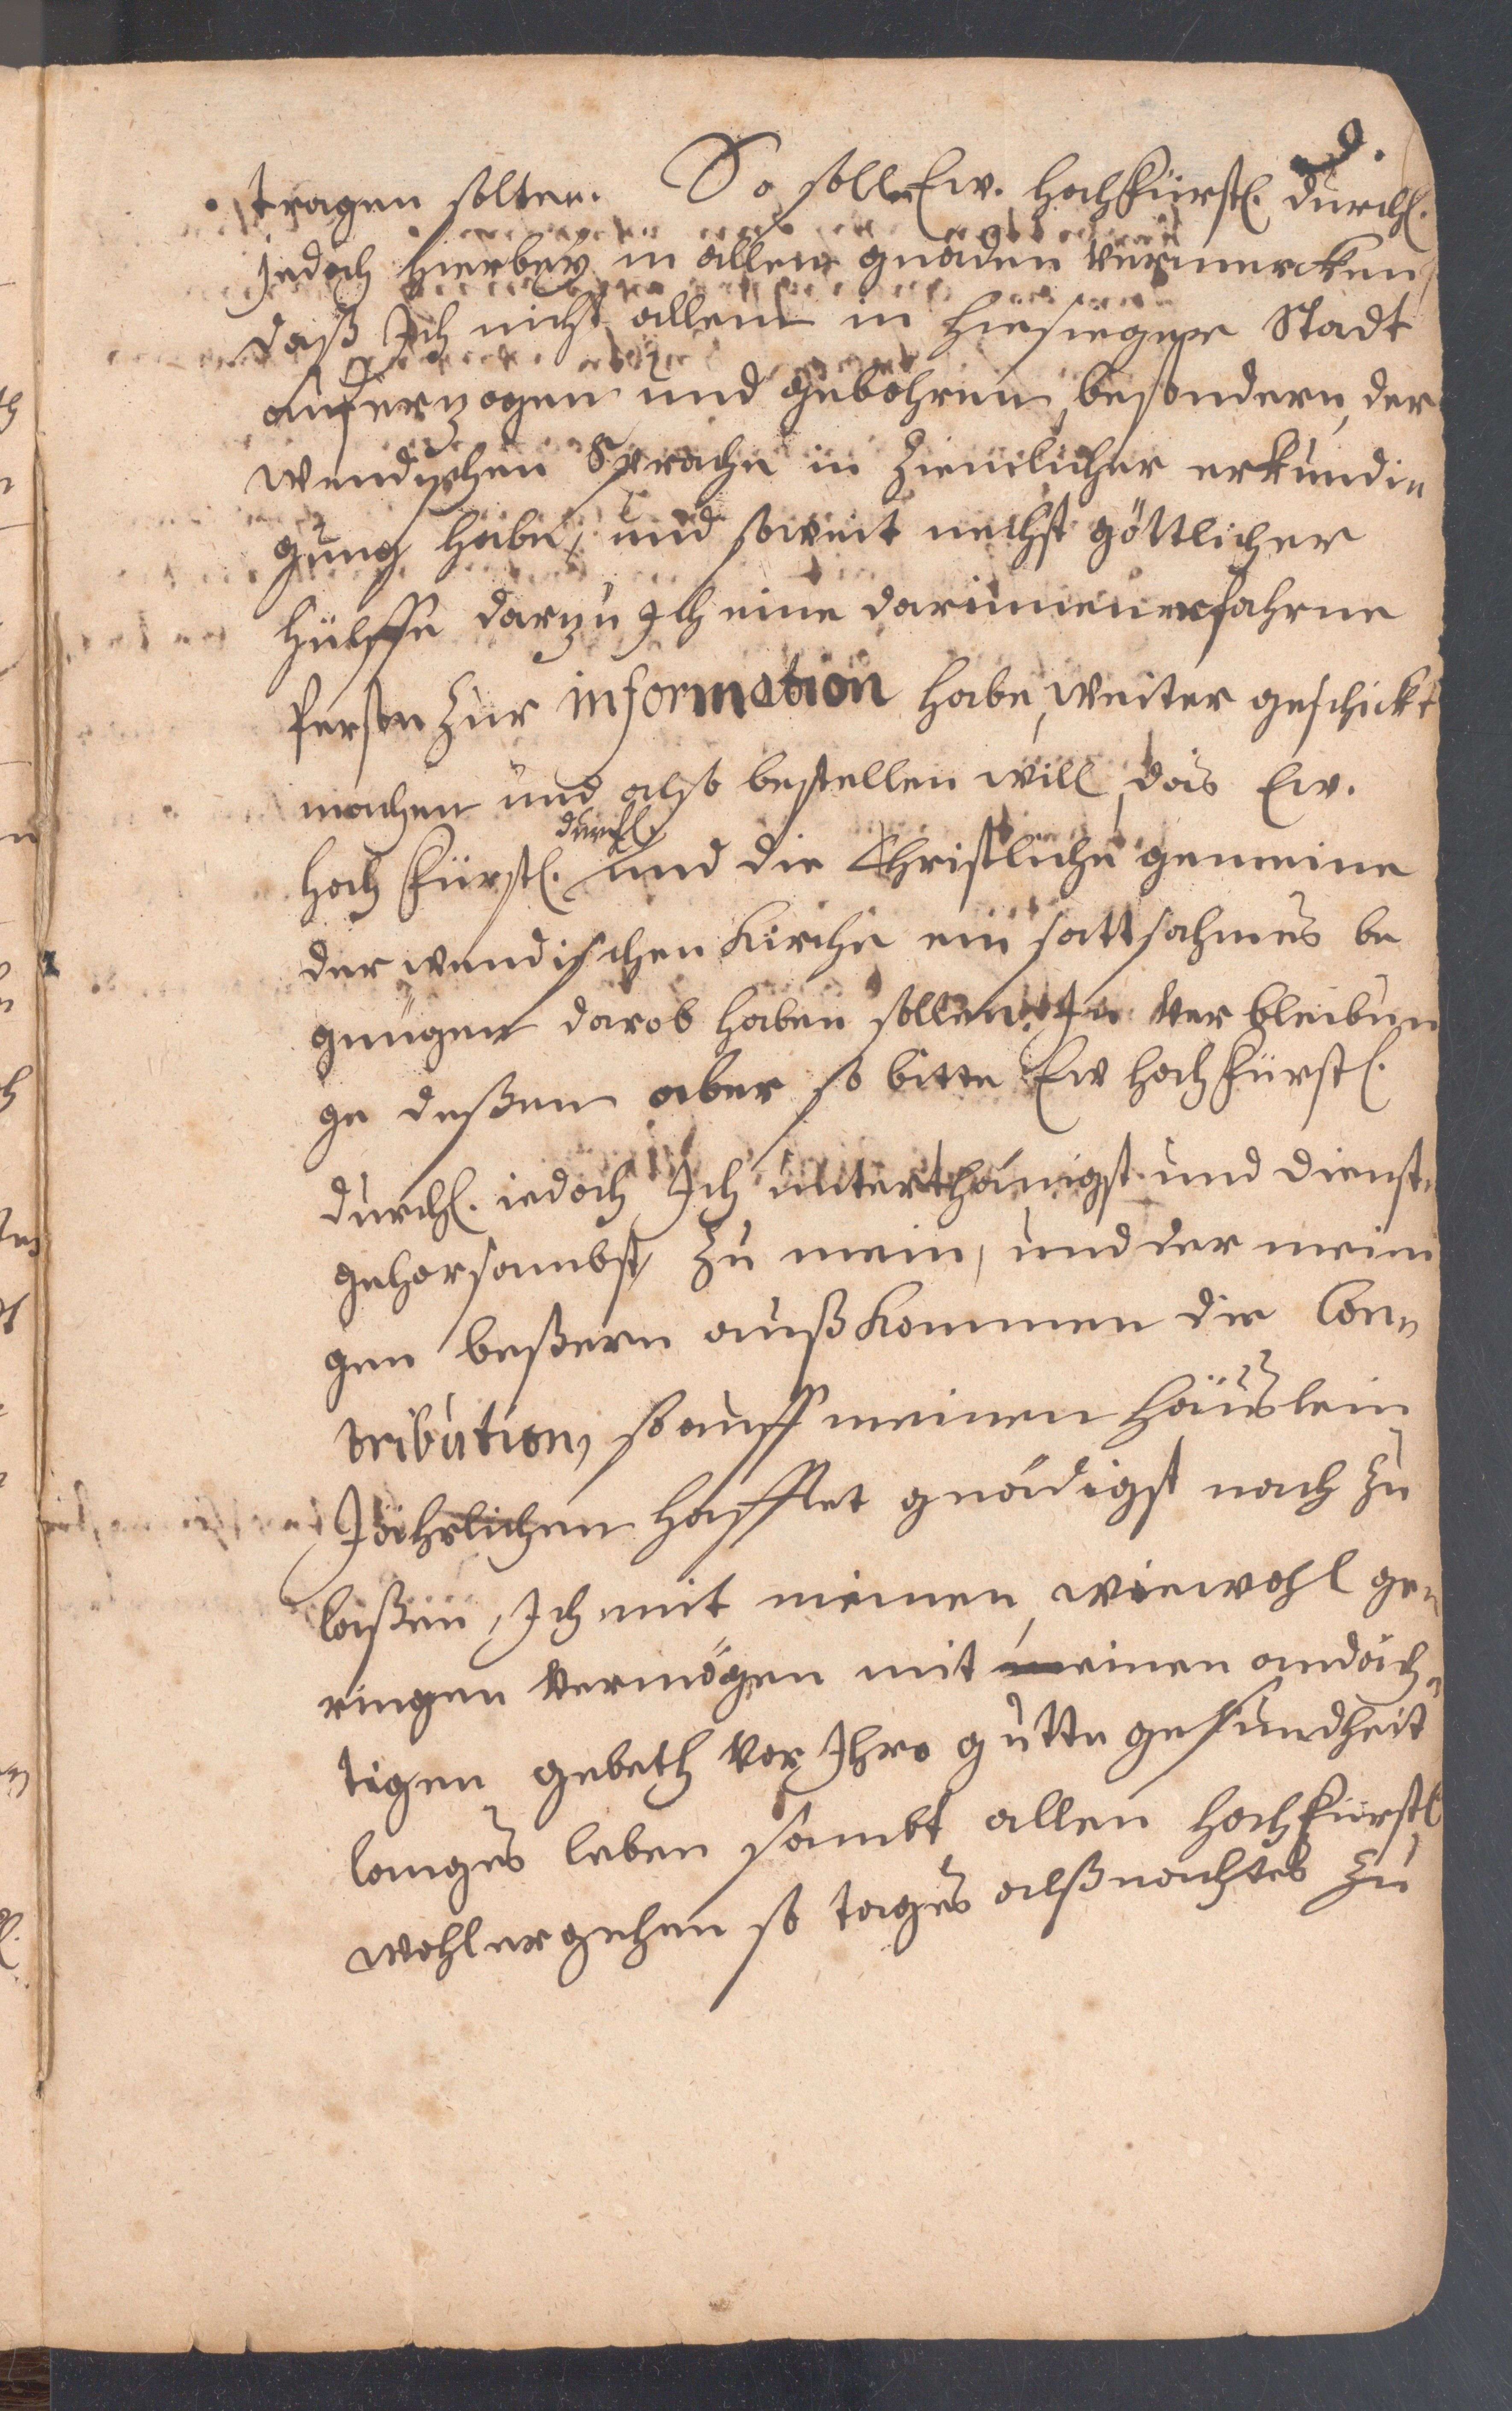 9.
tragen solten. So sollen Ew. Hochfürstl. Durchl.
jedoch hierbey in allen gnaden vermercken,
daß Ich nicht allein in hiesieger Stadt
auferzogen und gebohren, besondern, der
wendischen Sprache in zimlicher erkündi„
gung habe, und soweit nechst göttlicher
hülffe darzu Ich eine darinnen erfahrne
Person zur information habe, weiter geschickt
machen und also bestellen will, das Ew.
Hoch Fürstl. Durchl. und die Christliche gemeine
der wendischen Kirche ein sattsahmes be
gnügen darob haben sollen. In verbleibun
ge deßen aber so bitte Ew Hochfürstl.
Durchl. iedoch Ich unterthänigst und dienst„
gehorsambst, zu mein, und der meini
gen beßern außkommen die Con„
tribution, so auff meinen Häuslein
Jährlichen hafftet gnädigst nach zu
laßen, Ich mit meinen, wiewohl ge„
ringen vermögen mit meinen andäch„
tigen gebeth vor Ihro gutte gesundheit
langes leben sambt allen Hochfürstl
wohlergehen so tages alß nachtes zu